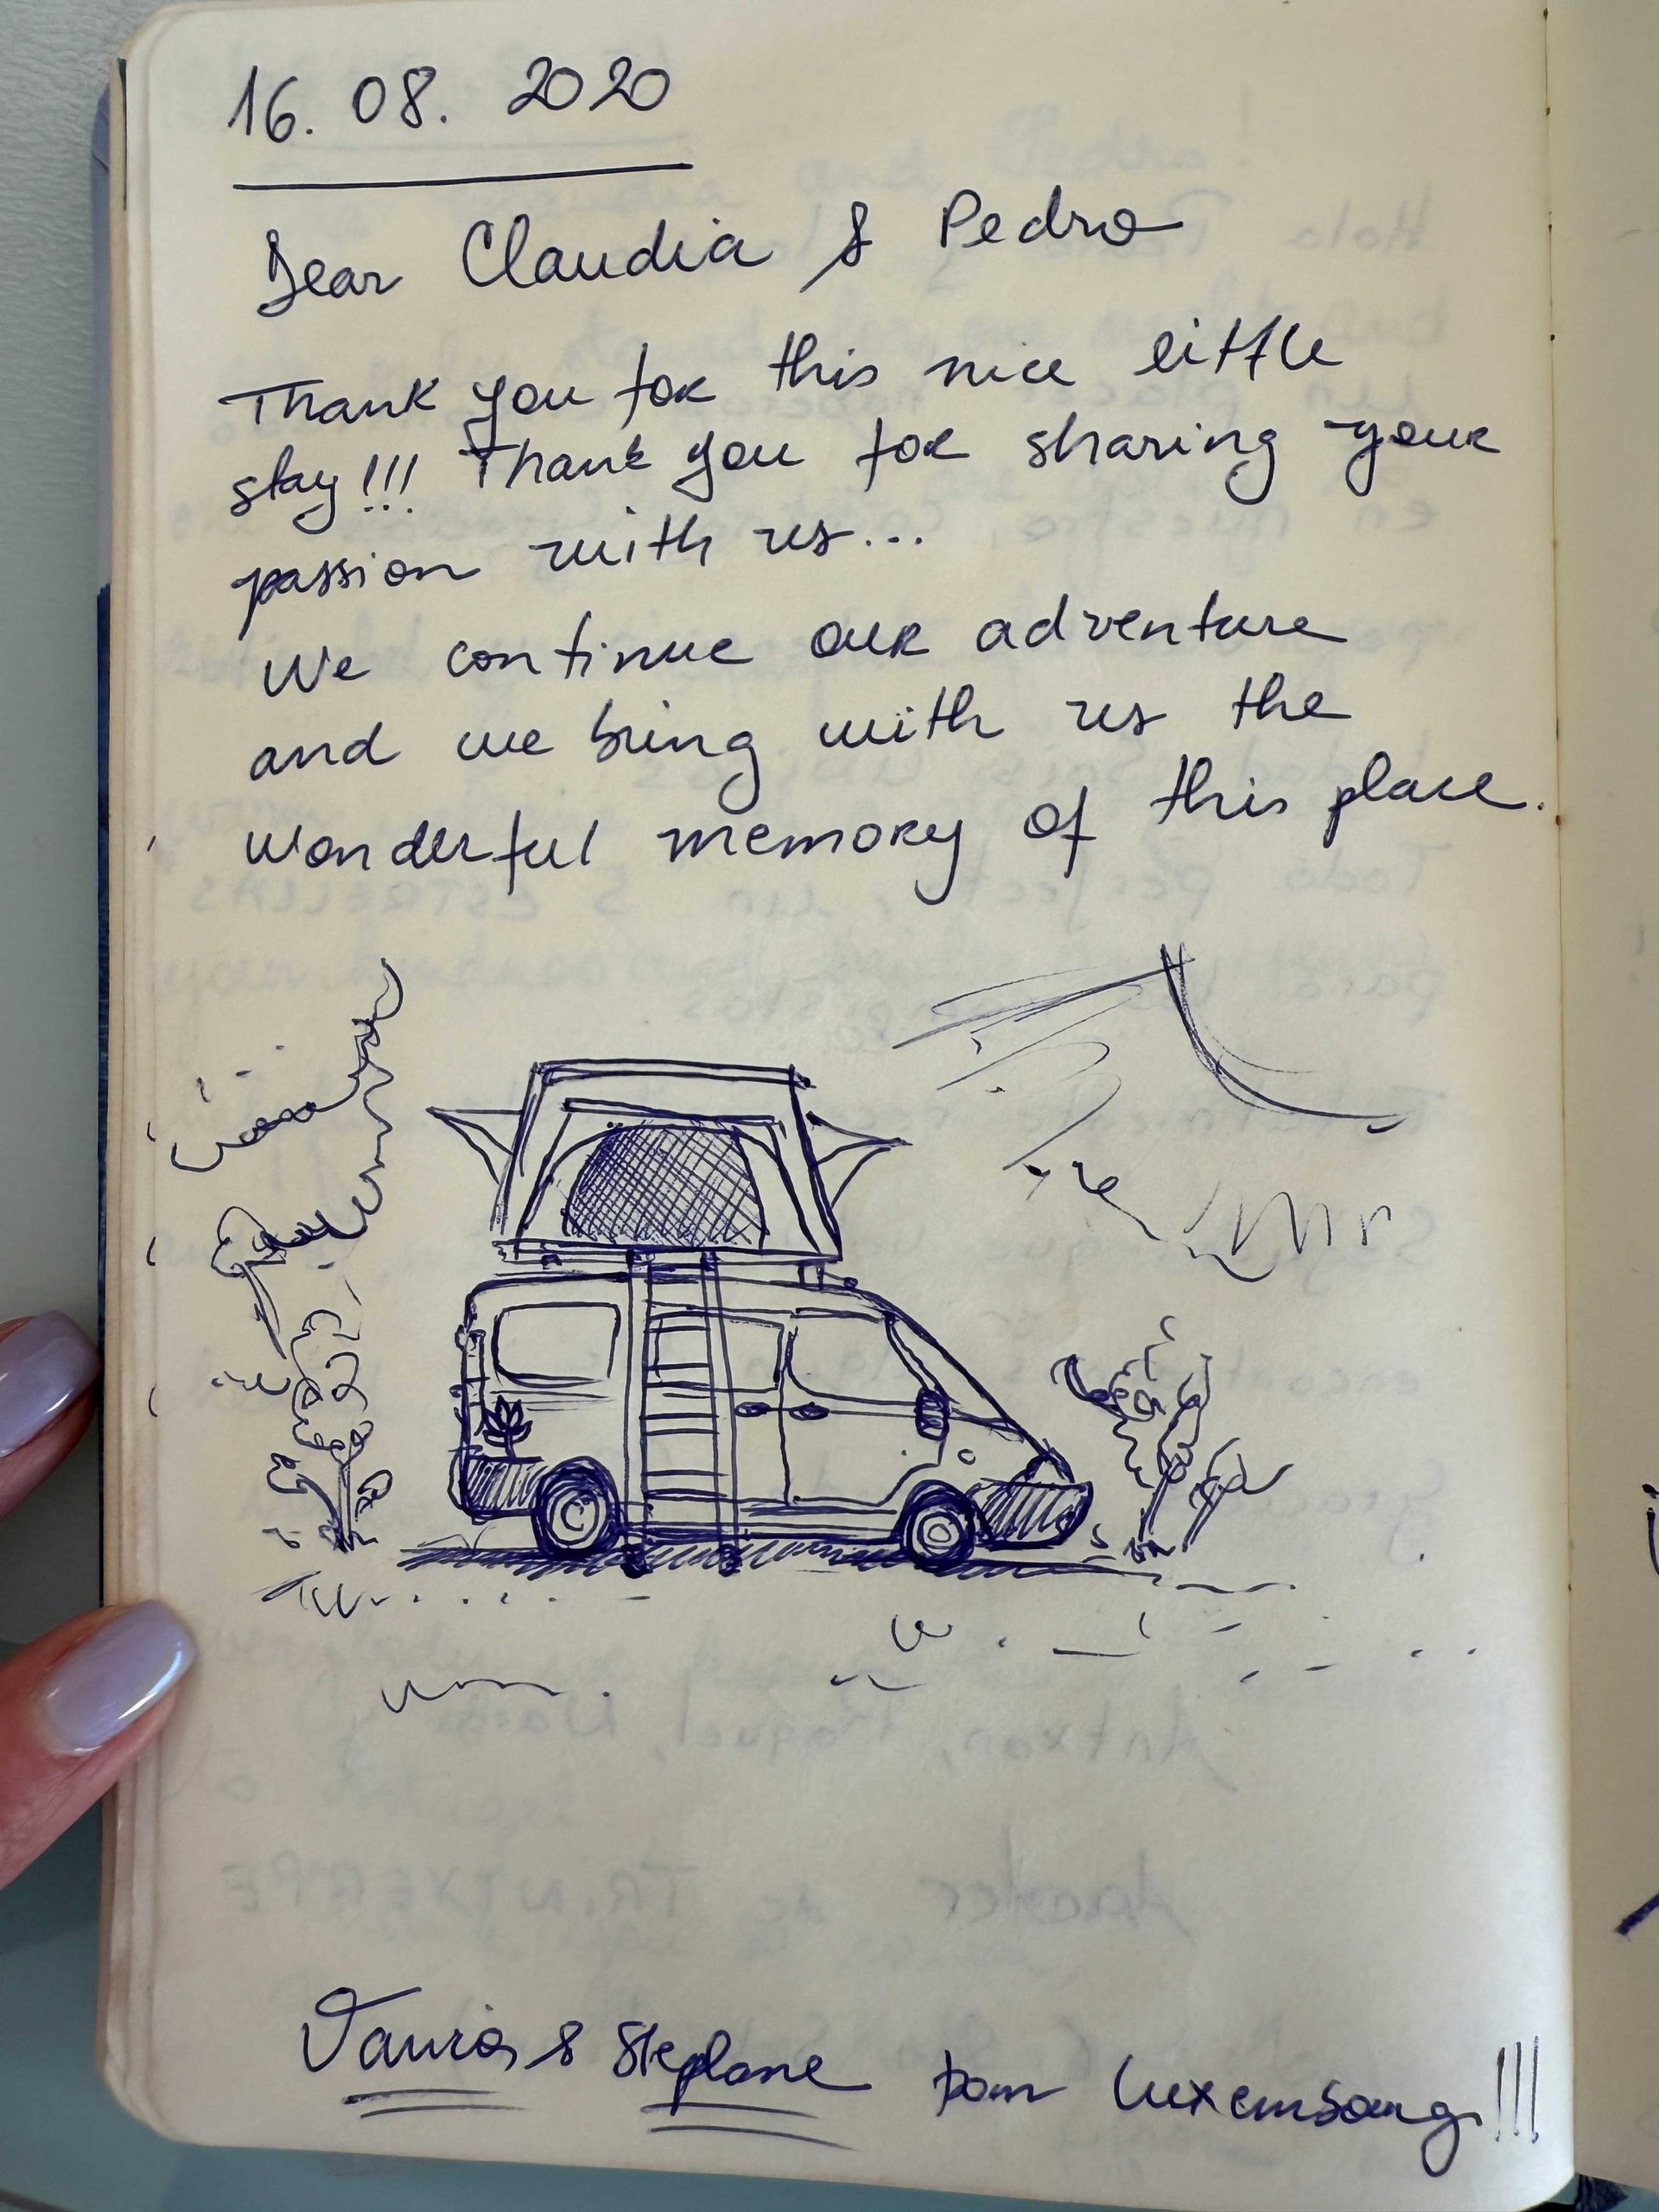 16. 08. 2020
Dear Claudia & Pedro
Thank you for this nice little
stay!!! Thank you for sharing your
passion with us...
We continue our adventure
and we bring with us the
wonderful memory of this place.
& from Luxembourg!!!